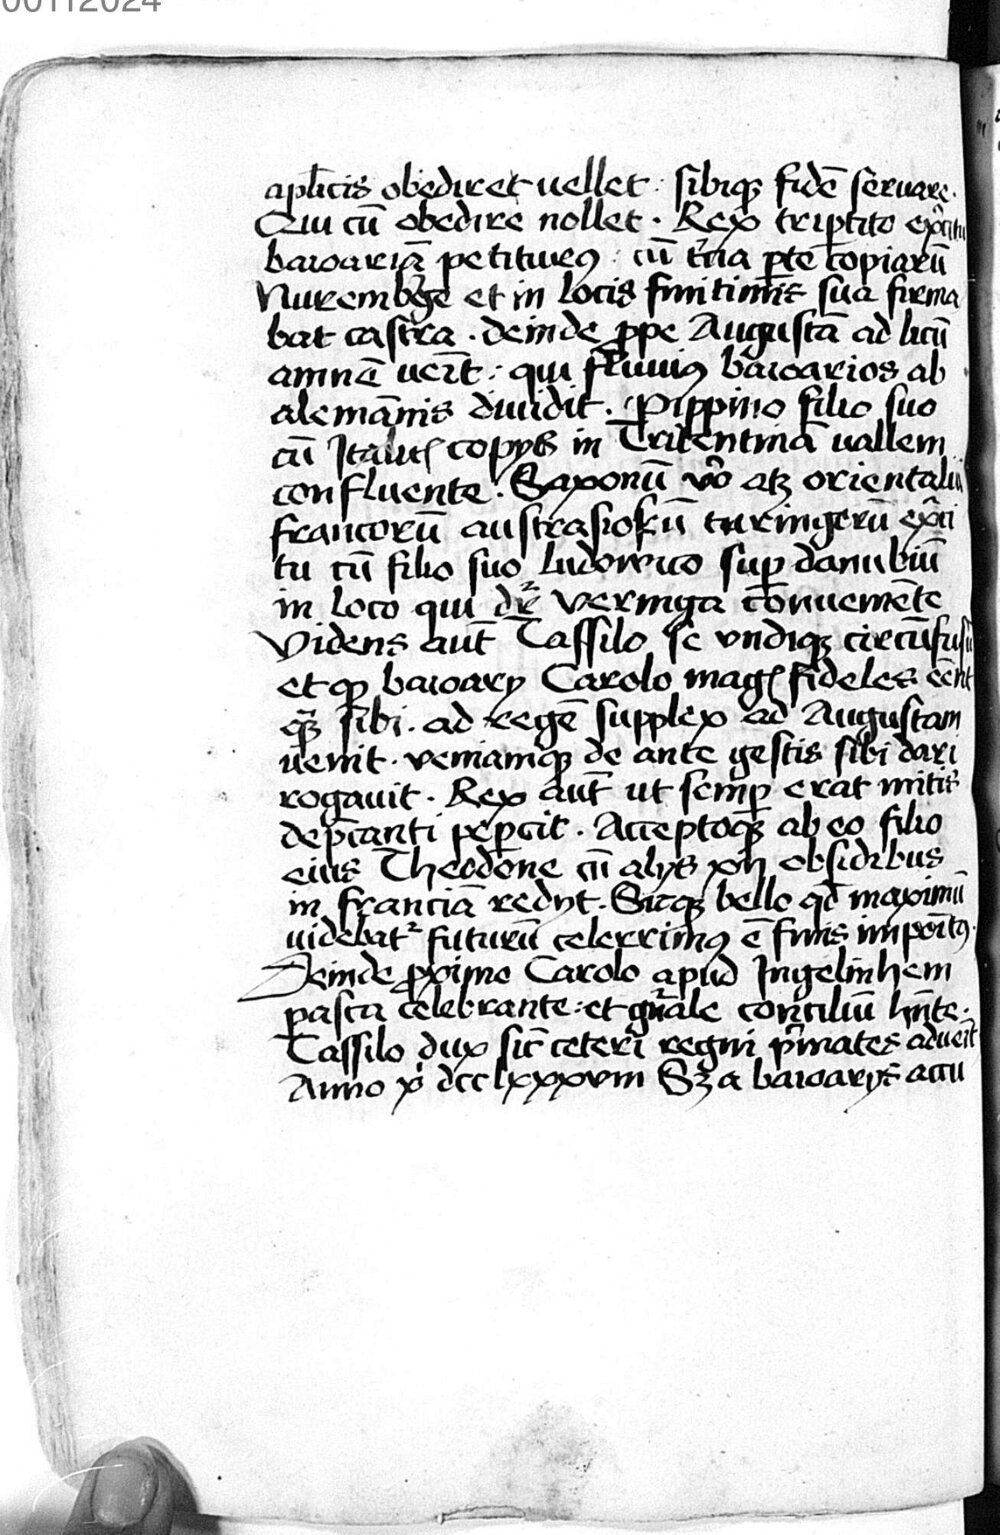 00112024
apl̄icis obediret vellet : sibiqꝫ fidē servare.
Qui cū obedire nollet . Rex tripartito exc̄itu
baioariā petiturꝰ : cū t̄cia ꝑte copiarū
Nurembḡe et in locis finitimis sua firma
bat castra . deinde ꝓpe Augustā ad licū
amnē ueīt : qui fluuiꝰ baioarios ab
alemānis diuidit . Pippino filio suo
cū Italicꝭ copijs in Tridentinā uallem
confluente . Saxonū v̄o atqꝫ orientaliū
francorū austrasiorū turingerū exc̄i
tu cū filio suo ludowico suꝑ danubiū
in loco qui dr̄ veringa cōuemēte
Videns aut̄ Tassilo se vndiqꝫ circūfusū
et qꝫ baioarij Carolo magꝭ fideles eēnt
qꝫ̄ sibi . ad regē supplex ad Augustam
uenit . veniamqꝫ de ante gestis sibi dari
rogauit . Rex aut̄ ut semꝑ erat mitis
dep̄canti peꝑcit . Acceptoqꝫ ab eo filio
eius Theodone cū alijs xij obsidibus
in franciā redijt . Sicqꝫ bello qd̄ maximū
uidebat᷑ futurū celerrimꝰ ē finis impoītꝰ .
Deinde ꝓximo Carolo apud Ingelinhem
pasca celebrante : et gn̄ale conciliū hn̄te :
Tassilo dux sic̄ ceteri regni p̄mates adueīt
Anno xᵖ̄ dcclxxxviii Sꝫ a baioarijs accu